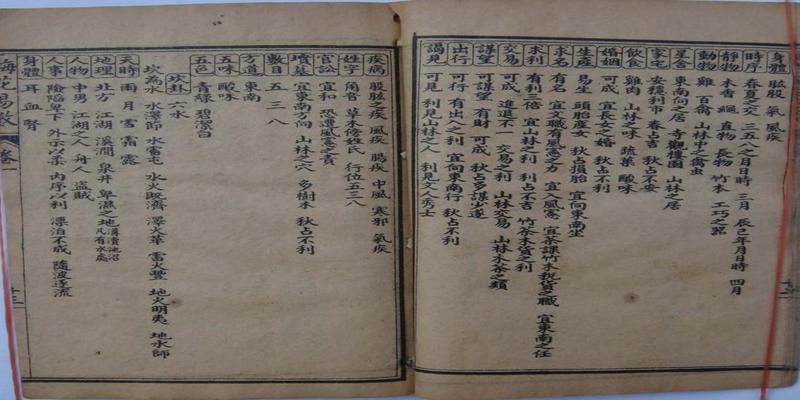 身體 股肱 氣 風疾
時序 春夏之交 三五八之月日時 三月 辰巳年月日時 四月
靜物 木香 繩 直物 長物 竹木 工巧之器
動物 雞 百禽 山林中之禽虫
東南向之居 寺觀樓園 山林之居
家宅 安穩利市 春占吉 秋占不安
飲食 雞肉 山林之味 蔬菜 酸味
婚姻 可成 宜長女之婚 秋占不利
生產 易生 頭胎產女 秋占損胎 宜向東南坐
求名 有名 宜文職有風憲之力 宜入風憲 宜茶課竹木稅貨之職 宜東南之任
求利 有利三倍 宜山林之利 秋占不吉 竹茶木貨之利
交易 可成 進退不一 交易之利 山林交易 山林木茶之類
謀望 可謀望 有財 可成 秋占多謀少遂
出行 可行 有出入之利 宜向東南行 秋占不利
謁見 可見 利見山林之人 利見文人秀士
疾病 股肱之疾 風疾 腸疾 中風 寒邪 氣疾
姓字 角音 草木傍姓氏 行位五三八
官訟 宜和 恐遭風憲之責
墳墓 宜東南方向 山林之穴 多樹木 秋占不利
數目 五 三 八
方道 東南
五味 酸味
五色 青綠 碧潔白
坎卦 六水
坎為水 水澤節 水雷屯 水火既濟 澤火革 雷火豐 地火明夷 地水師
天時 雨 月 雪 霜 露
地理 北方 江湖 溪澗 泉井 卑濕之地 溝瀆池沼凡有水處
人物 中男 江湖之人 舟人 盜賊
人事 險陷卑下 外示以柔 內序以利 漂泊不成 隨波逐流
身體 耳 血 腎
梅花易數 卷一